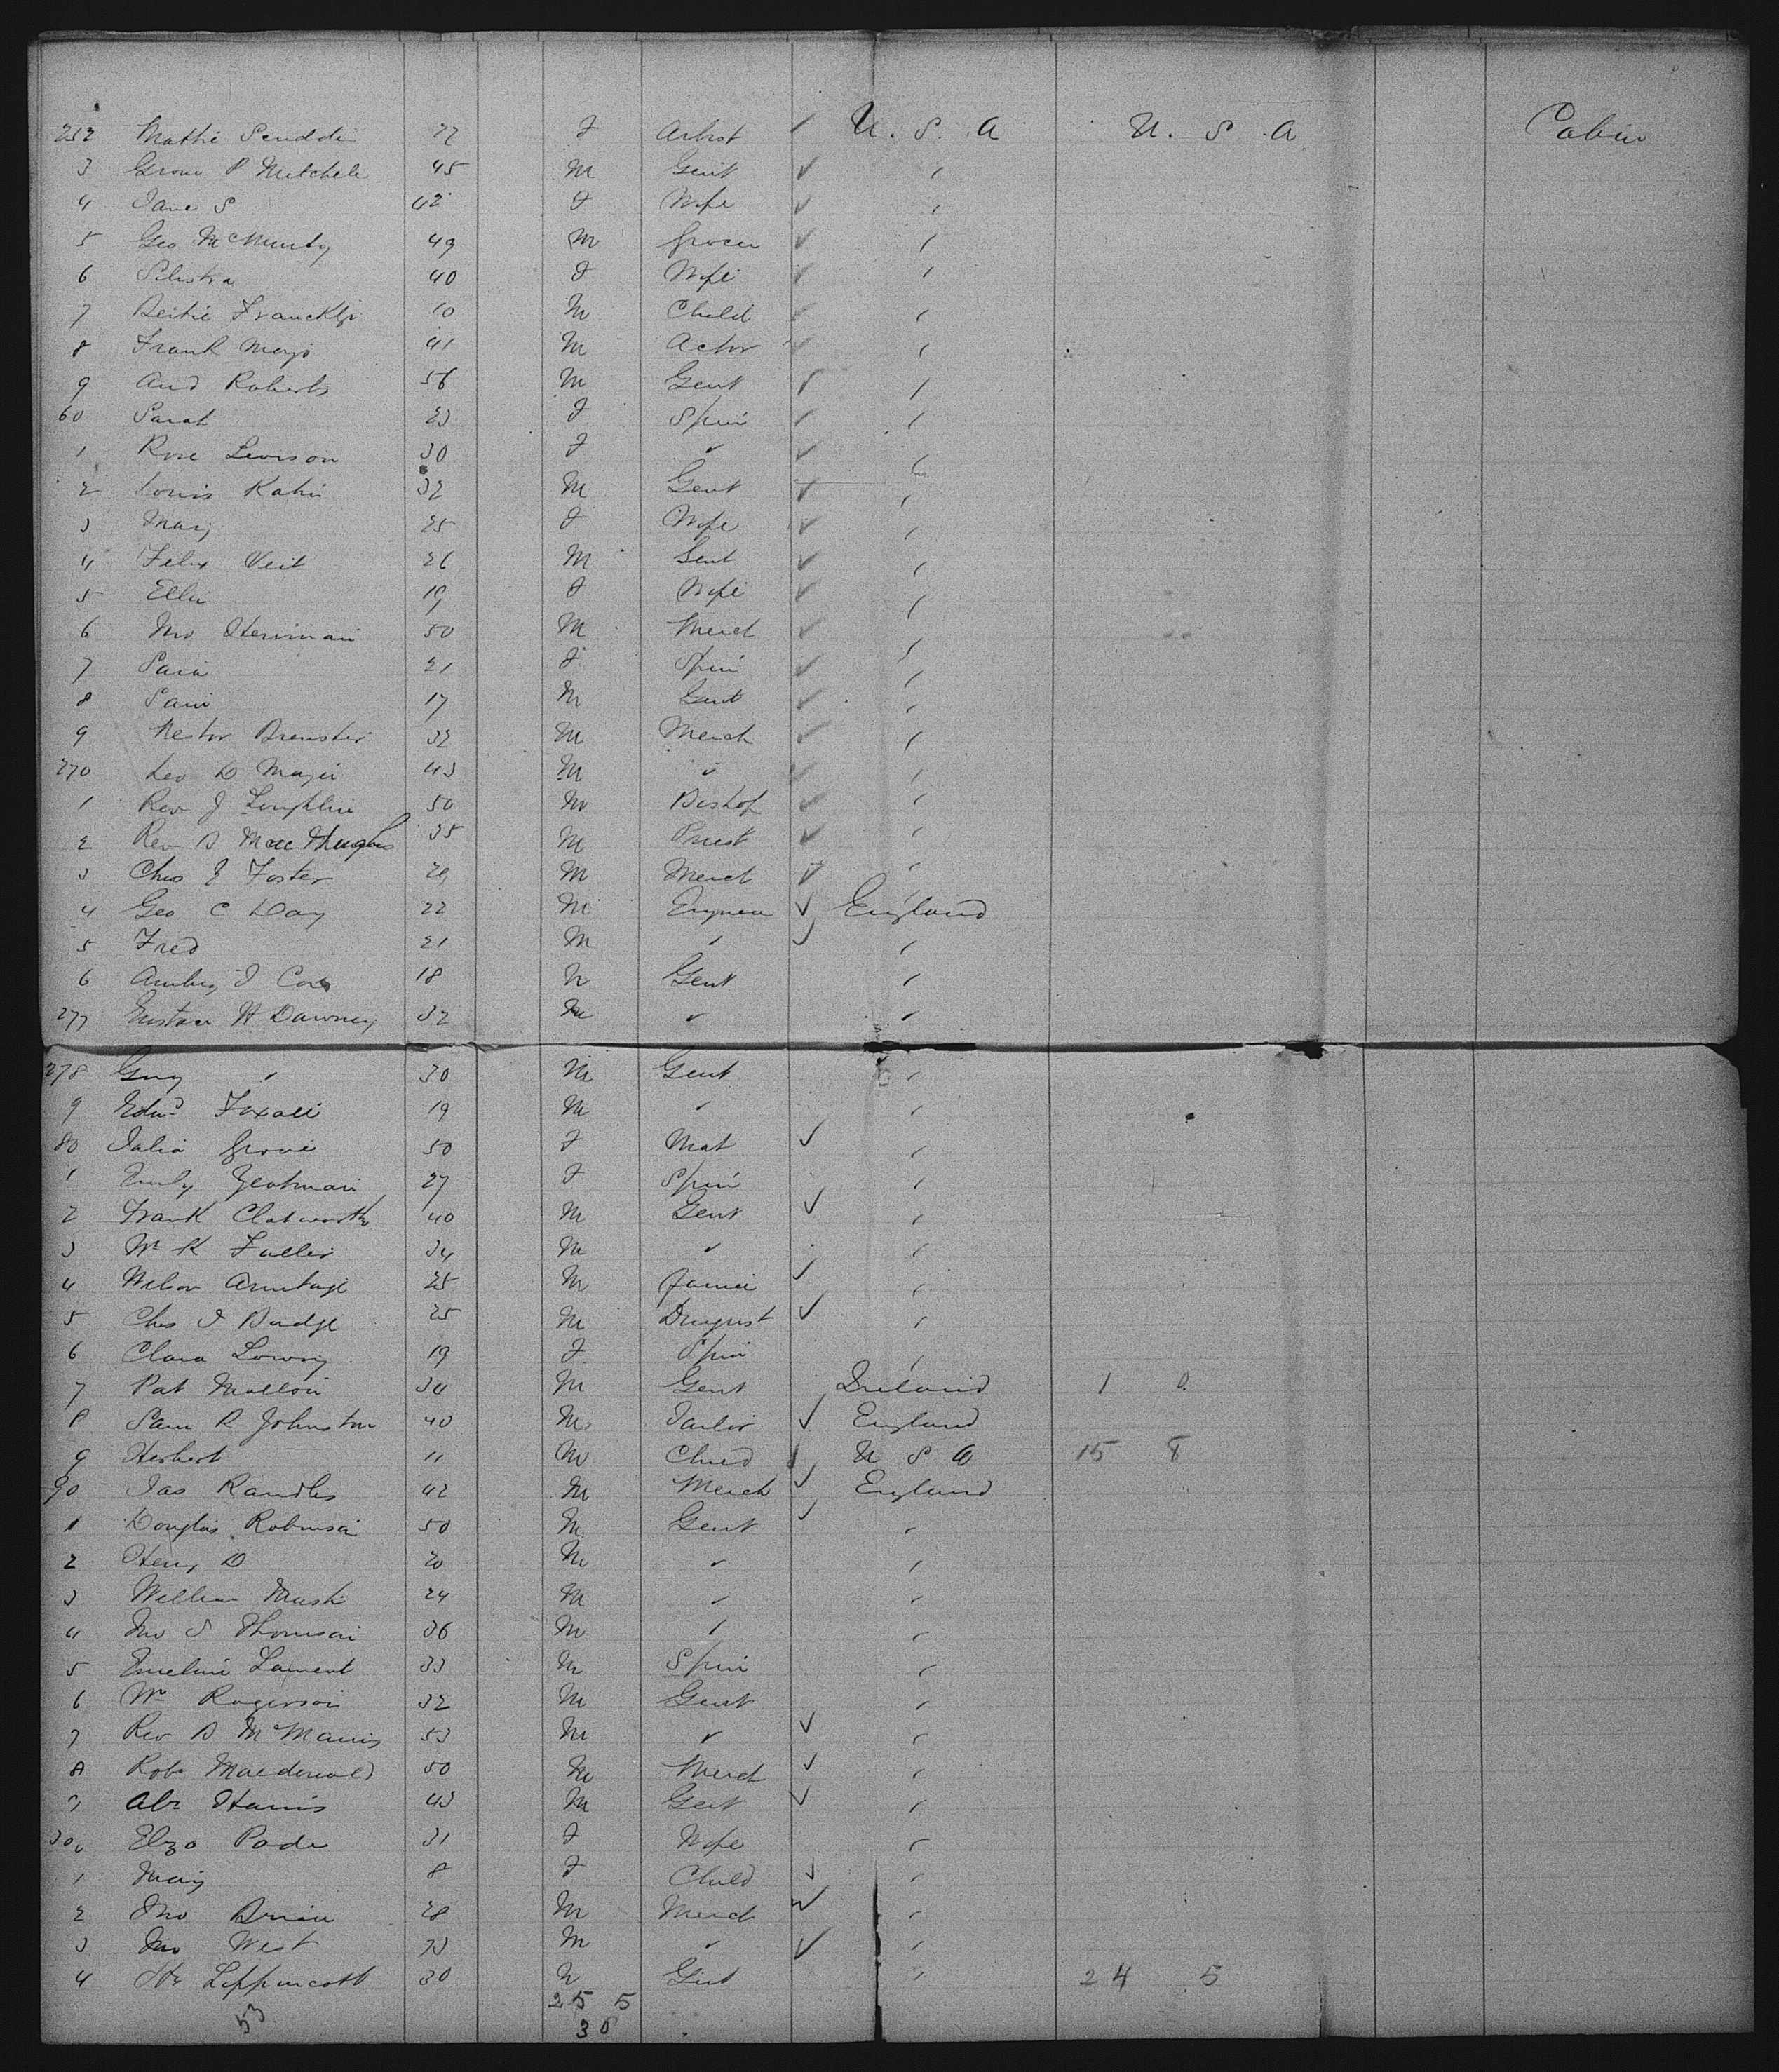 252 Mattie 22 F Artist U. S. A U. S. A Cabin
3 P Mitchell 45 M Gent
4 Jane S 42 F Wife
5 Geo McMurty 49 M Grocer
6 40 F Wife
7 10 M Child
8 Frank Mayo 41 M Actor
9 And Roberts 56 M Gent
60 Sarah 23 F Spin
1 Rose Levison 30 F "
2 Louis Kahn 32 M Gent
3 Mary 25 F Wife
4 Felix Veit 26 M Gent
5 Ellen 19 F Wife
6 Jno Herriman 50 M Merch
7 Sara 21 F Spin
8 Sam 17 M Gent
9 Nestor Brewster 32 M Merch
270 Leo D Mayer 43 M "
1 Rev J Loughlin 50 M Bishop
2 Rev D 35 M Priest
3 Chas E Foster 29 M Merch
4 Geo C Day 22 M Engineer England
5 Fred 21 M "
6 J Cox 18 M Gent
277 Eustace H Dawnay 32 M "
278 Guy " 30 M Gent
9 Edwd Foxall 19 M "
80 Julia Grove 50 F Mat
1 Emily Yeatman 27 F Spin
2 Frank Clatworthy 40 M Gent
3 Wm K Fuller 34 M "
4 Wilson Armitage 25 M
5 Chas J Budge 25 M Druggist
6 Clara Lowry 19 F Spin
7 Pat Mallon 34 M Gent Ireland 1 0
8 Sam R Johnston 40 M Tailor England
9 Herbert 11 M Child U S A 15 8
90 Jas Randles 42 M Merch England
1 Douglas Robinson 50 M Gent
2 Henry D 20 M "
3 William 24 M "
4 Jno S Thomson 36 M "
5 Emeline Lament 33 M Spin
6 Wm Rogerson 32 M Gent
7 Rev D McManus 53 M "
8 Robt Macdonald 50 M Merch
9 Abr Harris 43 M Gent
300 Eliza 31 F Wife
1 Mary 8 F Child
2 Jno Brian 28 M Merch
3 Jno West 33 M "
4 Lippincott 30 M Gent 24 5
53 25 5
30